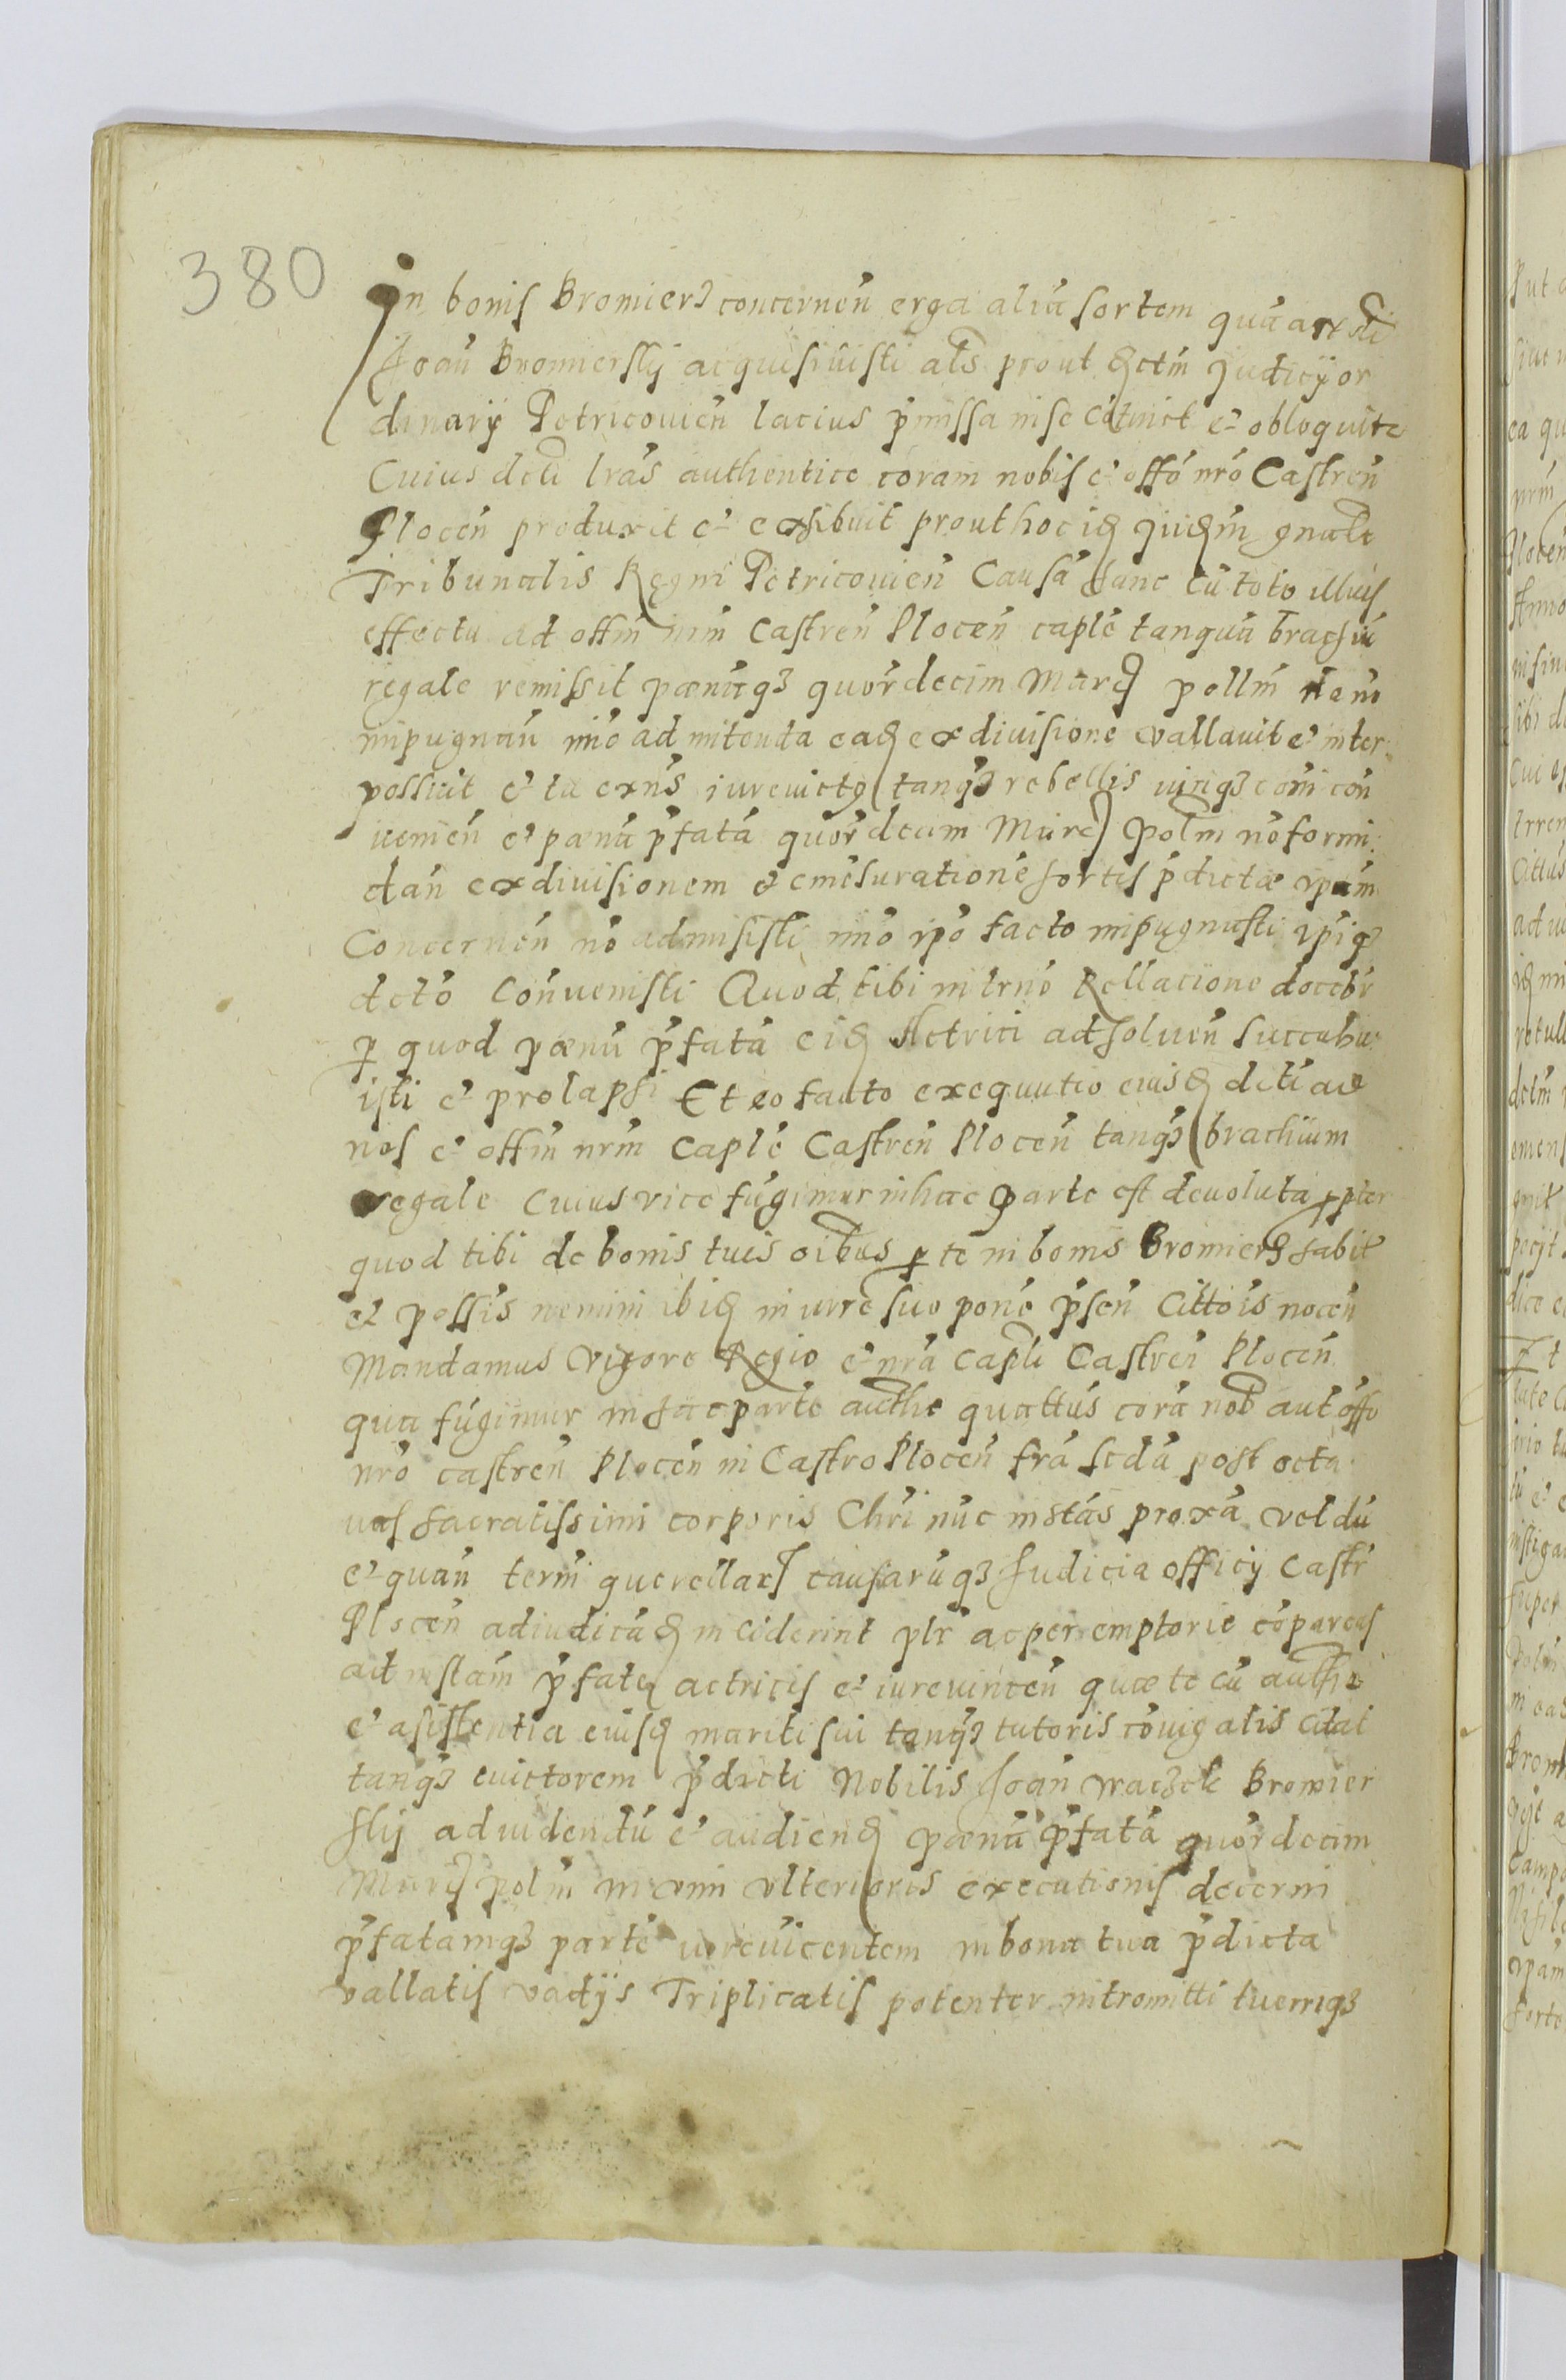 380
In bonis Bromierz concernen̄ erga aliā sortem quā a
Joan̄ Bromierskij acquisiuisti als prout dctm̄ Judicij or
dinarij Petricouien̄ lacius p̄missa in se cōtinet et obloquitr
Cuius dcti lrās authentice coram nobis et offō nrō Castren̄
Plocen̄ produxit et exhibuit prout hoc idem
Tribunalis Regni Petricouien̄ Causā hanc cū toto illius
effectu ad offm̄ nrm̄ Castren̄ Plocen̄ caplē tanquā brachiū
regale remissit pœnāqz quor̄decim Marc pollm̄
impugnan̄ imō admitenda ead exdiuisione vallauit et inter
possuit et tu exn̄s iureuictg tanqz rebellis iurique com̄i con
uenien̄ et pœnā p̄fatā quor̄decim Marc polm nō formi
dan̄ exdiuisionem et emēsurationē sortis p̄dictæ ipām
Concernen̄ nō admisisti imō ipō facto impugnasti ipiqz
dctō Con̄uenisti Quod tibi in trnō Rellacione docebr̄
p quod pœnā p̄fatā eid Actrici adsoluen̄ succubu
isti et prolapsi Et eo facto exequutio eiusd dcti ad
nos et offm̄ nrm̄ caplē Castren̄ Plocen̄ tanqz brachium
regale Cuius vice fūgimur in hac parte est deuoluta ppter
quod tibi de bonis tuis oībus p te in bonis Bromierz habit
et possis nemini ibid in iurē suo ponē p̄sen̄ Cittōis nocen̄
Mandamus vigore Regio et nrā capli Castren̄ Plocen̄
qua fūgimur in hac parte authe quattūs corā nob aut offō
nrō castren̄ Plocen̄ in Castro Plocen̄ frā scdā post octa
uas sacratissimi corporis Chrī nūc instās proxā vel dū
et quan̄ term̄ querellar causarūqz Judicia officij Castr̄
Plocen̄ adiudicād inciderint plr̄ ac peremptorie cōpareas
ad instam̄ p̄fate actricis et iureuincen̄ quæ te cū authe
et asistentia eiusd mariti sui tanqz tutoris cōiugalis citat
tanqz euictorem p̄dicti Nobilis Joan̄ Bromier
skij ad uidendū et audiend pœnā p̄fatā quor̄decim
Marc polm̄ in vim ulterioris executionis decerni
p̄fatamqz partē iureuīcentem in bona tua p̄dicta
vallatis vadijs Triplicatis potenter intromitti